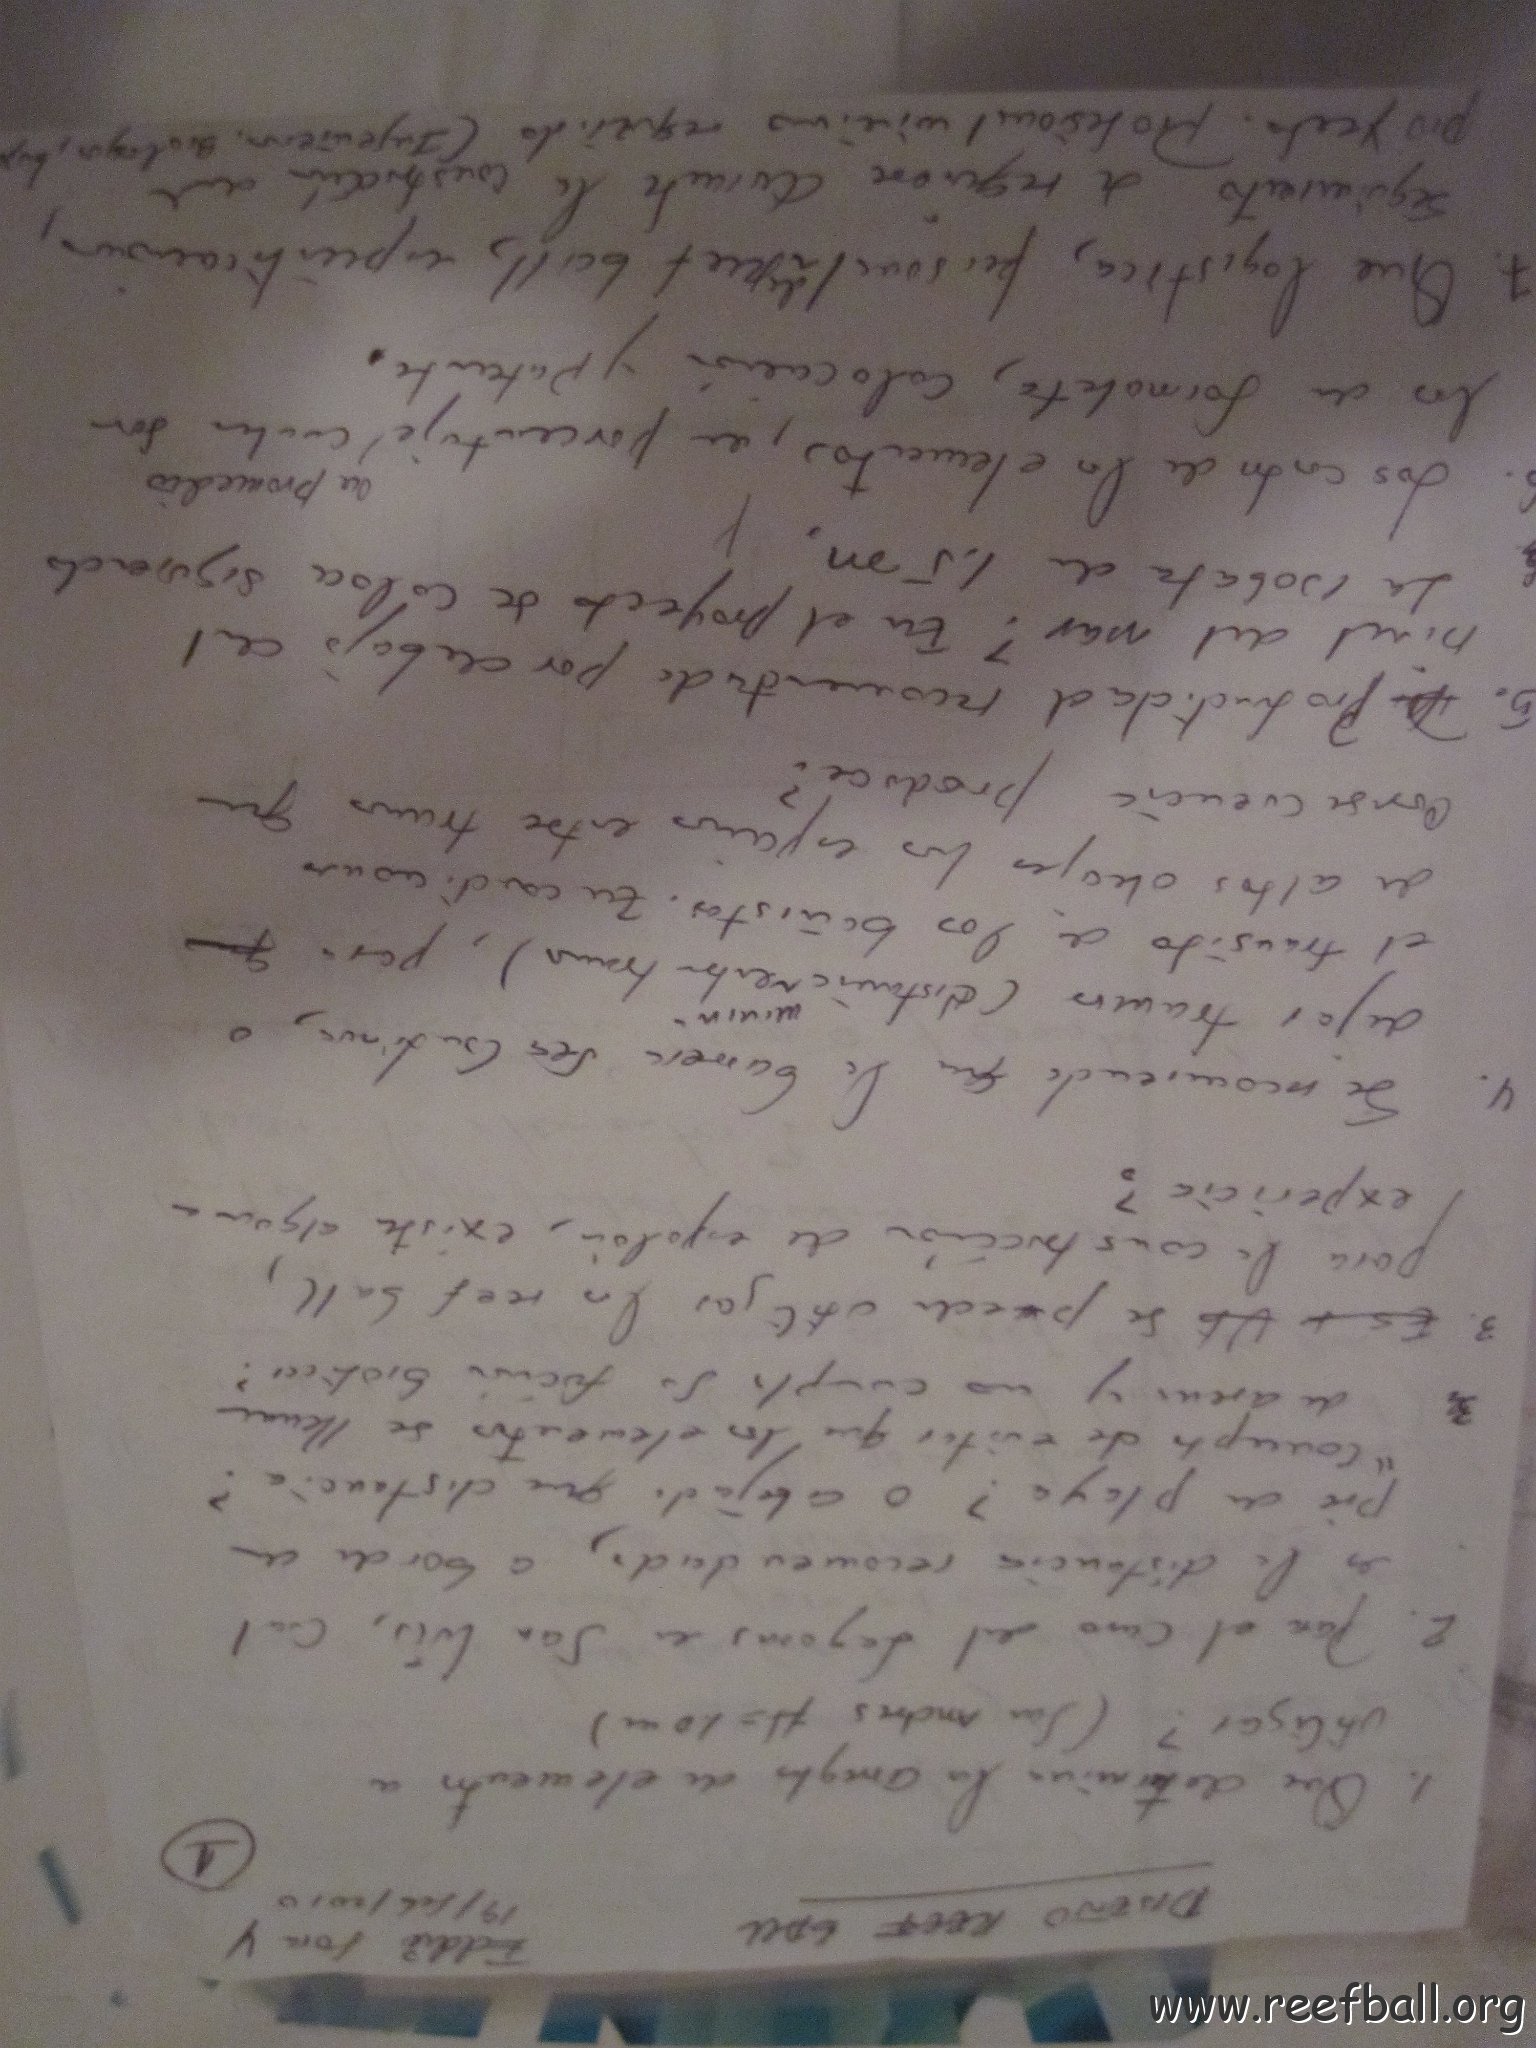 DISEÑO REEF BALL
19/feb/2010
1
1. Que determina los arreglos de elementos a
utilizar? (San Andres H=10m)
2. Para el caso del Lagoons en San Luis, Cual
es la distancia recomendada, a borde de
pie de playa? O alejada que distancia?
"Concepto de evitar que los elementos se llenan
de arena y no cumpla su función biotica?
3. Se puede utilizar los reef ball,
para la construccion de espolon, existe alguna
experiencia?
4. Se recomienda que la barrera sea continua, o
dejar tramos (distancia entre tramos), para
minima
el transito de los bañistas. En condiciones
de altos oleajes los espacios entre tramos que
consecuencia produce?
5. Profundidad recomendada por debajo del
nivel del mar? En el proyecto se coloca siguiendo
La isobata de 1.5 m.
6. Los costos de los elementos, en porcentaje cuales son
en promedio
los de formaleta, colocación y patente.
7. Que logistica, personal de reef ball, especificaciones,
seguimiento se requiere durante la construcción del
proyecto. Profesional minimo requerido (Ingeniero, biologo,
www.reefball.org